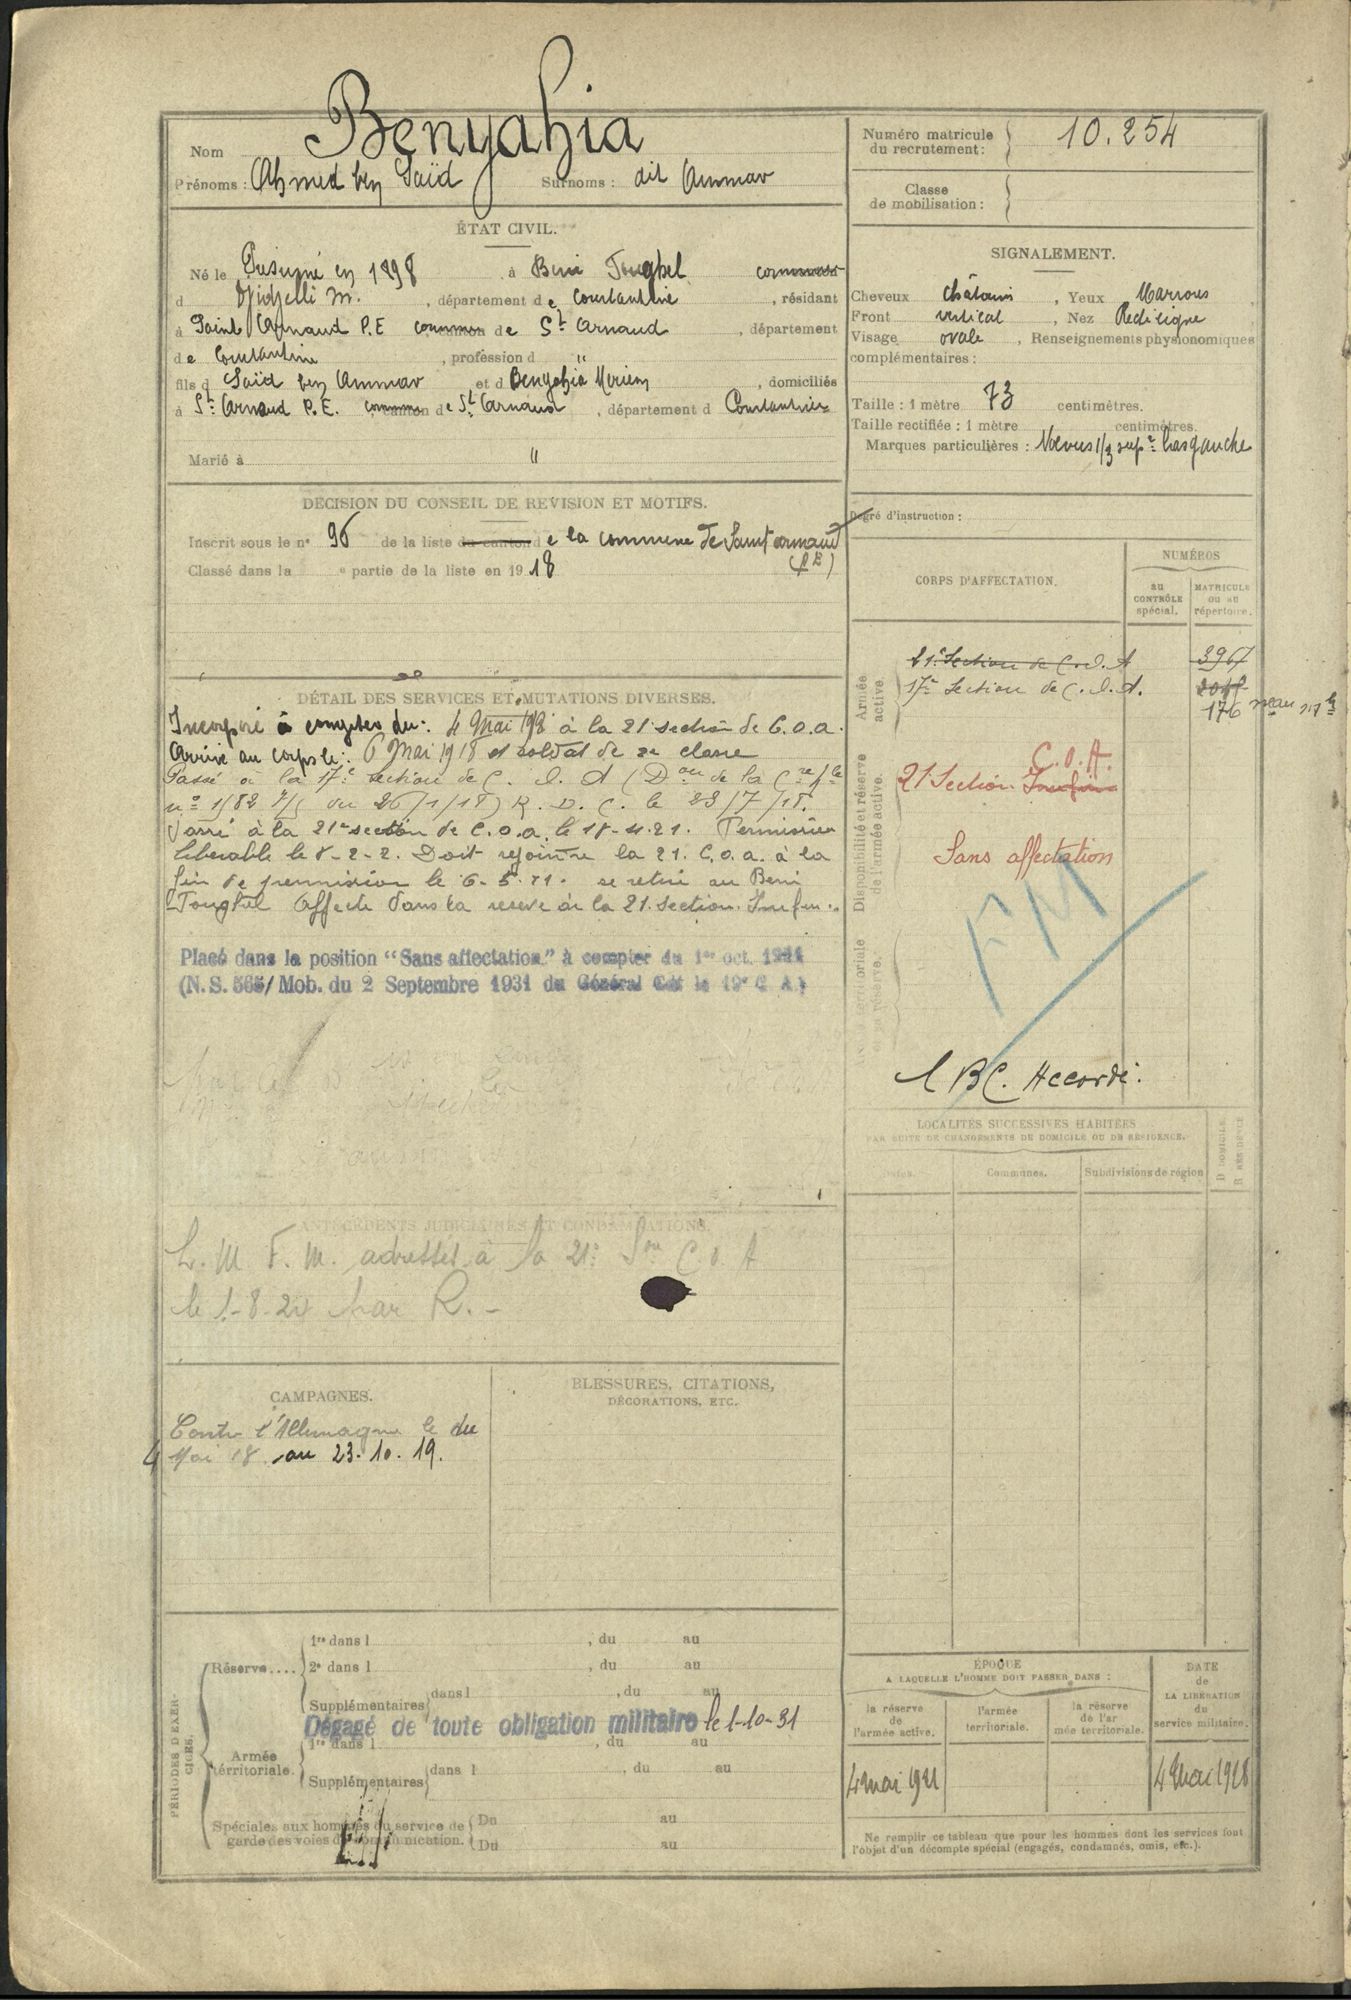 Nom Benyahia
Prénoms : Ahmed ben Saïd Surnoms : dit Ammar
ÉTAT CIVIL.
Né le Présumé en 1898 à Beni Foughal commune
d Djidjelli M. , département de Constantine , résidant
à Saint Arnaud P.E commune de St Arnaud , département
de Constantine , profession d "
fils d Saïd ben Ammar et d Benyahia Meriem , domiciliés
à St Arnaud P.E. commune de St Arnaud , département d Constantine
Marié à "
DÉCISION DU CONSEIL DE REVISION ET MOTIFS.
Inscrit sous le n° 96 de la liste du canton de la commune de Saint arnaud
(P E)
Classé dans la e partie de la liste en 1918
DÉTAIL DES SERVICES ET MUTATIONS DIVERSES.
Incorporé à compter du : 4 Mai 1918 à la 21e section de C.O.A.
Arrivé au corps le : 6 Mai 1918 et soldat de 2e classe
Passé à la 17e section de C. O. A (Don de la
n° 1582 du 26/1/18) R. D. C. le 23/7/18.
Passé à la 21e section de C.O.A. le 18-4-21. Permission
libérable le Doit rejoindre la 21. C.O.A. à la
fin de permission le se retire au Beni
Foughal Affecté dans la réserve à la 21. Section.
Placé dans la position "Sans affectation" à compter du 1er oct. 1931
(N.S. 565/ Mob. du 2 Septembre 1931 du Général Cdt le 19e C A)
ANTÉCÉDENTS JUDICIAIRES ET CONDAMNATIONS.
L. M F. M. adressés à la 21e Son C.O.A
le 1-8-20 R. -
CAMPAGNES.
Contre l'Allemagne le du
4 Mai 18 au 23.10.19.
BLESSURES, CITATIONS,
DÉCORATIONS, ETC.
PÉRIODES D'EXERCICES.
Réserve....
1re dans l , du au
2e dans l , du au
Supplémentaires dans l , du au
Dégagé de toute obligation militaire le 1-10-31
Armée territoriale.
1re dans l , du au
Supplémentaires dans l , du au
Spéciales aux hommes du service de garde des voies de communication.
Du au
Du au
Numéro matricule
du recrutement : 10.254
Classe
de mobilisation :
SIGNALEMENT.
Cheveux châtains , Yeux Marrons ,
Front vertical , Nez Rectiligne
Visage ovale , Renseignements physionomiques
complémentaires :
Taille : 1 mètre 73 centimètres.
Taille rectifiée : 1 mètre centimètres.
Marques particulières : Noevus 1/3 supr bras gauche
Degré d'instruction :
CORPS D'AFFECTATION.
NUMÉROS
au CONTRÔLE spécial.
MATRICULE ou au répertoire.
Armée active.
21e Section de C.O.A 3967
17e Section de C.O.A.
176
Disponibilité et réserve de l'armée active.
C.O.A.
21 Section
Sans affectation
FM
BC. Accordé.
LOCALITÉS SUCCESSIVES HABITÉES
PAR SUITE DE CHANGEMENTS DE DOMICILE OU DE RÉSIDENCE.
Dates. Communes. Subdivisions de région
D DOMICILE.
R RÉSIDENCE
ÉPOQUE
A LAQUELLE L'HOMME DOIT PASSER DANS :
la réserve de l'armée active.
l'armée territoriale.
la réserve de l'armée territoriale.
DATE de LA LIBÉRATION du service militaire.
4 mai 1921
4 Mai 1928
Ne remplir ce tableau que pour les hommes dont les services font
l'objet d'un décompte spécial (engagés, condamnés, omis, etc.).